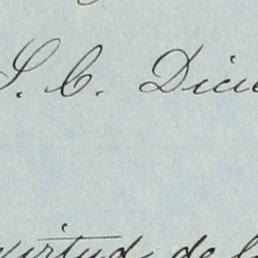 S. C. Dici
virtud de l